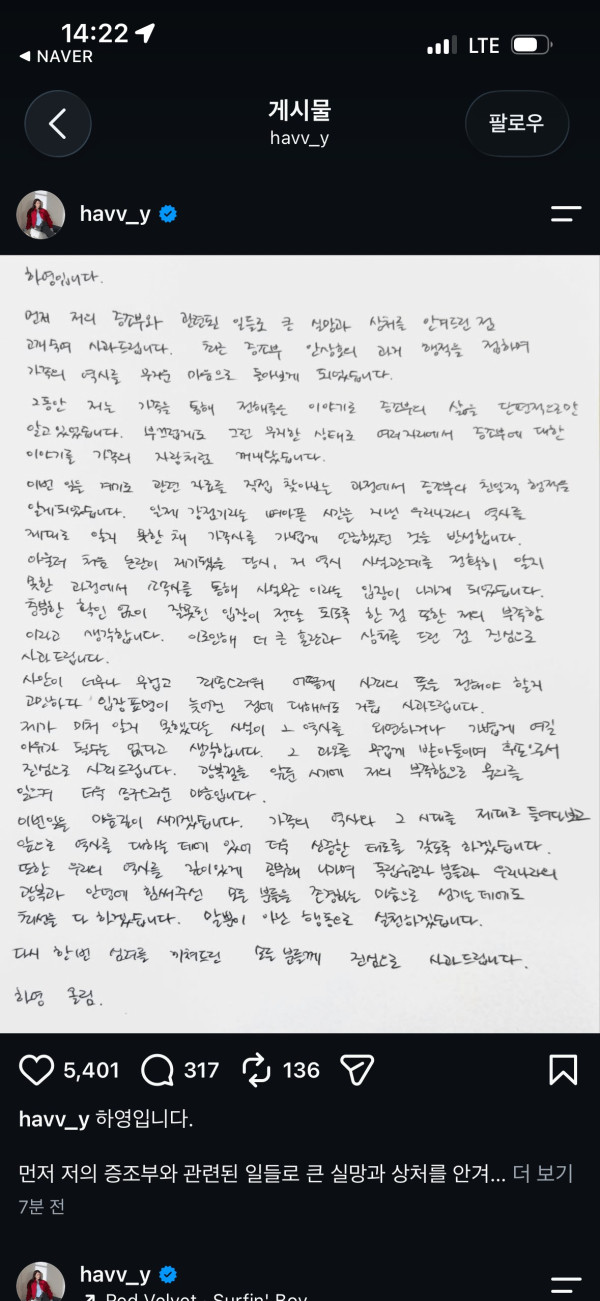 14:22
◀ NAVER
LTE
게시물
havv_y
팔로우
havv_y
하영입니다.
먼저 저의 증조부와 관련된 일들로 큰 실망과 상처를 안겨드린 점
고개숙여 사과드립니다. 최근 증조부 안상호의 과거 행적을 접하며
가족의 역사를 무거운 마음으로 돌아보게 되었습니다.
그동안 저는 가족을 통해 전해들은 이야기로 증조부의 삶을 단편적으로만
알고 있었습니다. 부끄럽게도 그런 무지한 상태로 여러 자리에서 증조부에 대한
이야기를 가족의 자랑처럼 꺼내왔습니다.
이번 일을 계기로 관련 자료를 직접 찾아보는 과정에서 증조부의 친일적 행적을
알게되었습니다. 일제 강점기라는 뼈아픈 시간을 지낸 우리나라의 역사를
제대로 알지 못한 채 가족사를 가볍게 언급했던 것을 반성합니다.
아울러 처음 논란이 제기됐을 당시, 저 역시 사실관계를 정확히 알지
못한 과정에서 소속사를 통해 사실무근 이라는 입장이 나가게 되었습니다.
충분한 확인 없이 잘못된 입장이 전달 되도록 한 점 또한 저의 부족함
이라고 생각합니다. 이로인해 더 큰 혼란과 상처를 드린 점 진심으로
사과드립니다.
사안이 너무나 무겁고 죄송스러워 어떻게 사죄의 뜻을 전해야 할지
고민하다 입장표명이 늦어진 점에 대해서도 거듭 사과드립니다.
제가 미처 알지 못했다는 사실이 그 역사를 외면하거나 가볍게 여길
이유가 될수는 없다고 생각합니다. 그 과오를 무겁게 받아들이며 후손으로서
진심으로 사죄드립니다. 광복절을 앞둔 시기에 저의 부족함으로 물의를
일으켜 더욱 송구스러운 마음입니다.
이번일을 마음깊이 새기겠습니다. 가족의 역사와 그 시대를 제대로 들여다보고
앞으로 역사를 대하는 데에 있어 더욱 신중한 태도를 갖도록 하겠습니다.
또한 우리의 역사를 깊이있게 공부해 나가며 독립유공자 분들과 우리나라의
광복과 안녕에 힘써주신 모든 분들을 존경하는 마음으로 섬기는데에도
최선을 다 하겠습니다. 말뿐이 아닌 행동으로 실천하겠습니다.
다시 한번 심려를 끼쳐드린 모든 분들께 진심으로 사과드립니다.
하영 올림.
5,401 317 136
havv_y 하영입니다.
먼저 저의 증조부와 관련된 일들로 큰 실망과 상처를 안겨... 더 보기
7분 전
havv_y
Red Velvet · Surfin' Boy